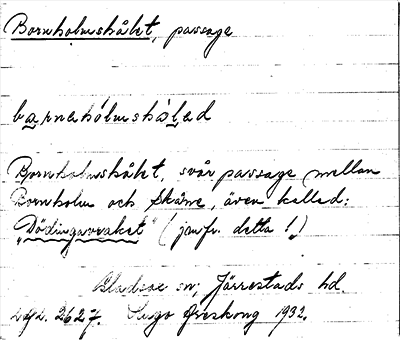 Bornholmshålet, passage
barnehólmshàled
Bornholmshålet, svår passage mellan
Bornholm och Skåne, även kallad:
"Dödingaraket" (jmfr. detta!)
Gladsax sn; Järrestads hd.
2627. Ingo Areskong 1932.